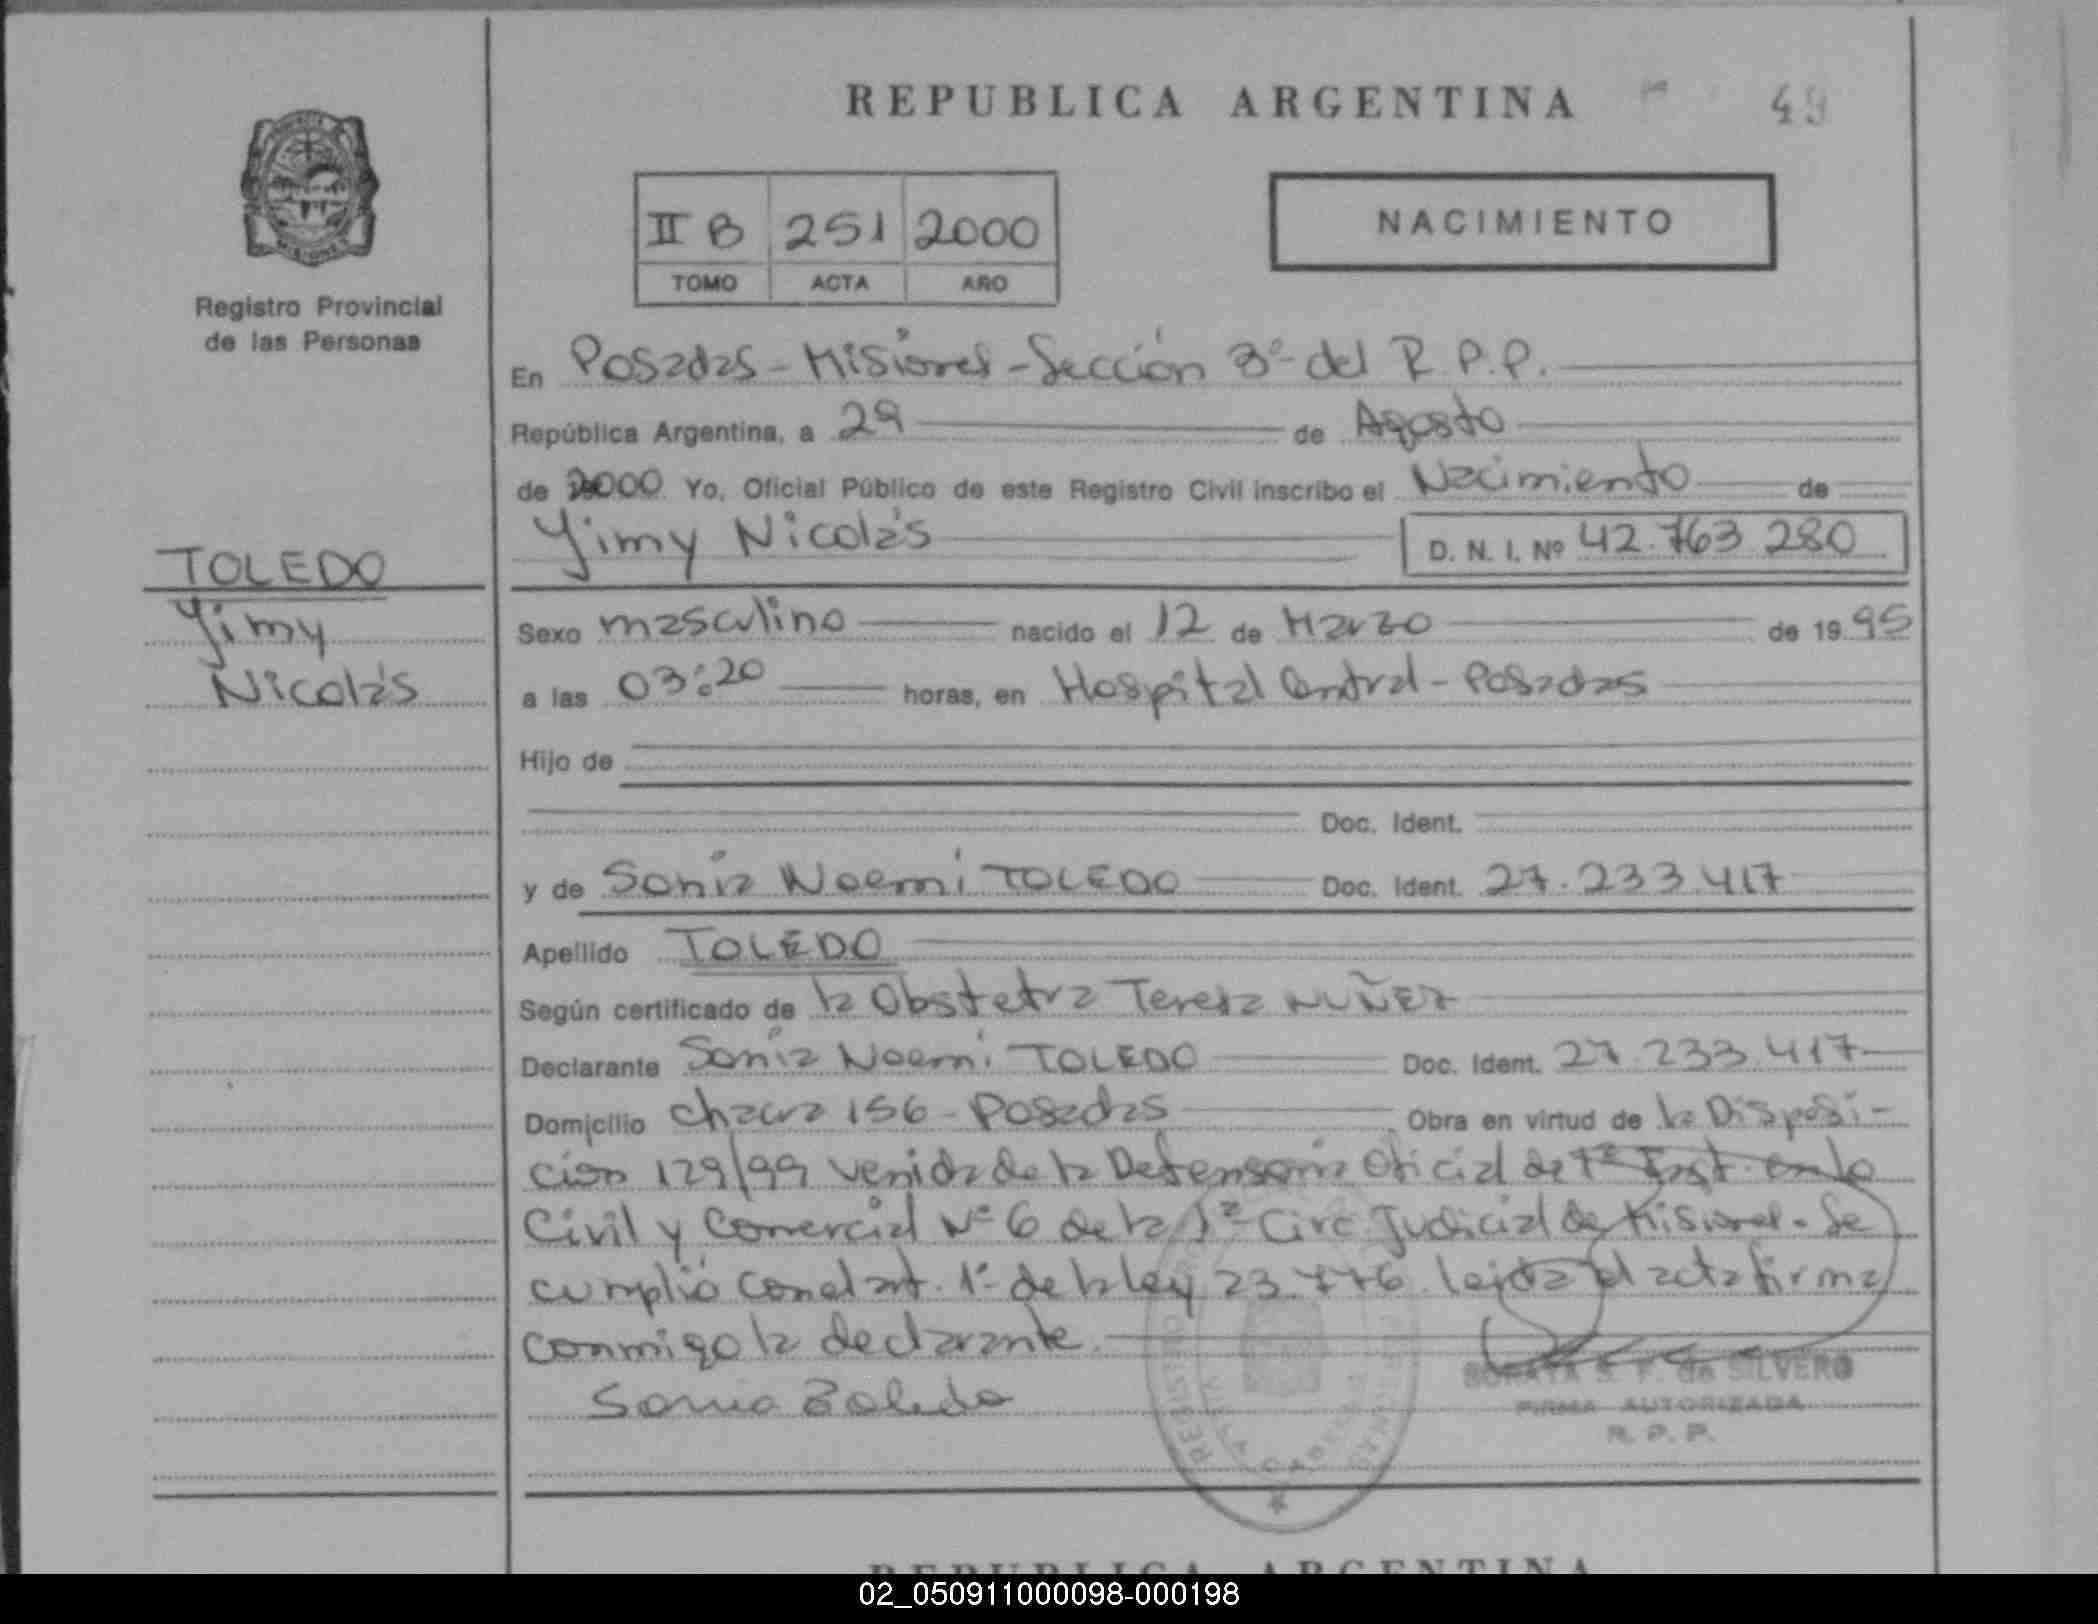 REPUBLICA ARGENTINA
49
II B 251 2000
TOMO ACTA AÑO
NACIMIENTO
Registro Provincial
de las Personas
En Posadas - Misiones - Sección 3º del R.P.P.
República Argentina, a 29 de Agosto
de 2000 Yo, Oficial Público de este Registro Civil inscribo el Nacimiento de
Yimy Nicolás D. N. I. Nº 42.763.280
TOLEDO
Yimy
Nicolás
Sexo masculino nacido el 12 de Marzo de 1995
a las 03:20 horas, en Hospital Central - Posadas
Hijo de
Doc. Ident.
y de Sonia Noemí TOLEDO Doc. Ident. 27.233.417
Apellido TOLEDO
Según certificado de la Obstetra Teresa NUÑEZ
Declarante Sonia Noemí TOLEDO Doc. Ident. 27.233.417
Domicilio chacra 156 - Posadas Obra en virtud de la Disposi-
ción 129/99 venida de la Defensoría Oficial de 1ª Inst. en lo
Civil y Comercial Nº 6 de la 1ª Circ. Judicial de Misiones. Se
cumplió con el art. 1º de la ley 23.776 leída el acta firma
conmigo la declarante.
Sonia Toledo
S. F. de SILVERO
FIRMA AUTORIZADA
R. P. P.
REPUBLICA ARGENTINA
02_050911000098-000198